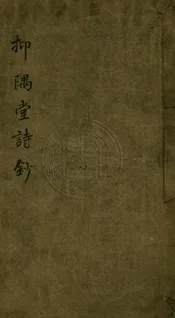 抑隅堂詩鈔